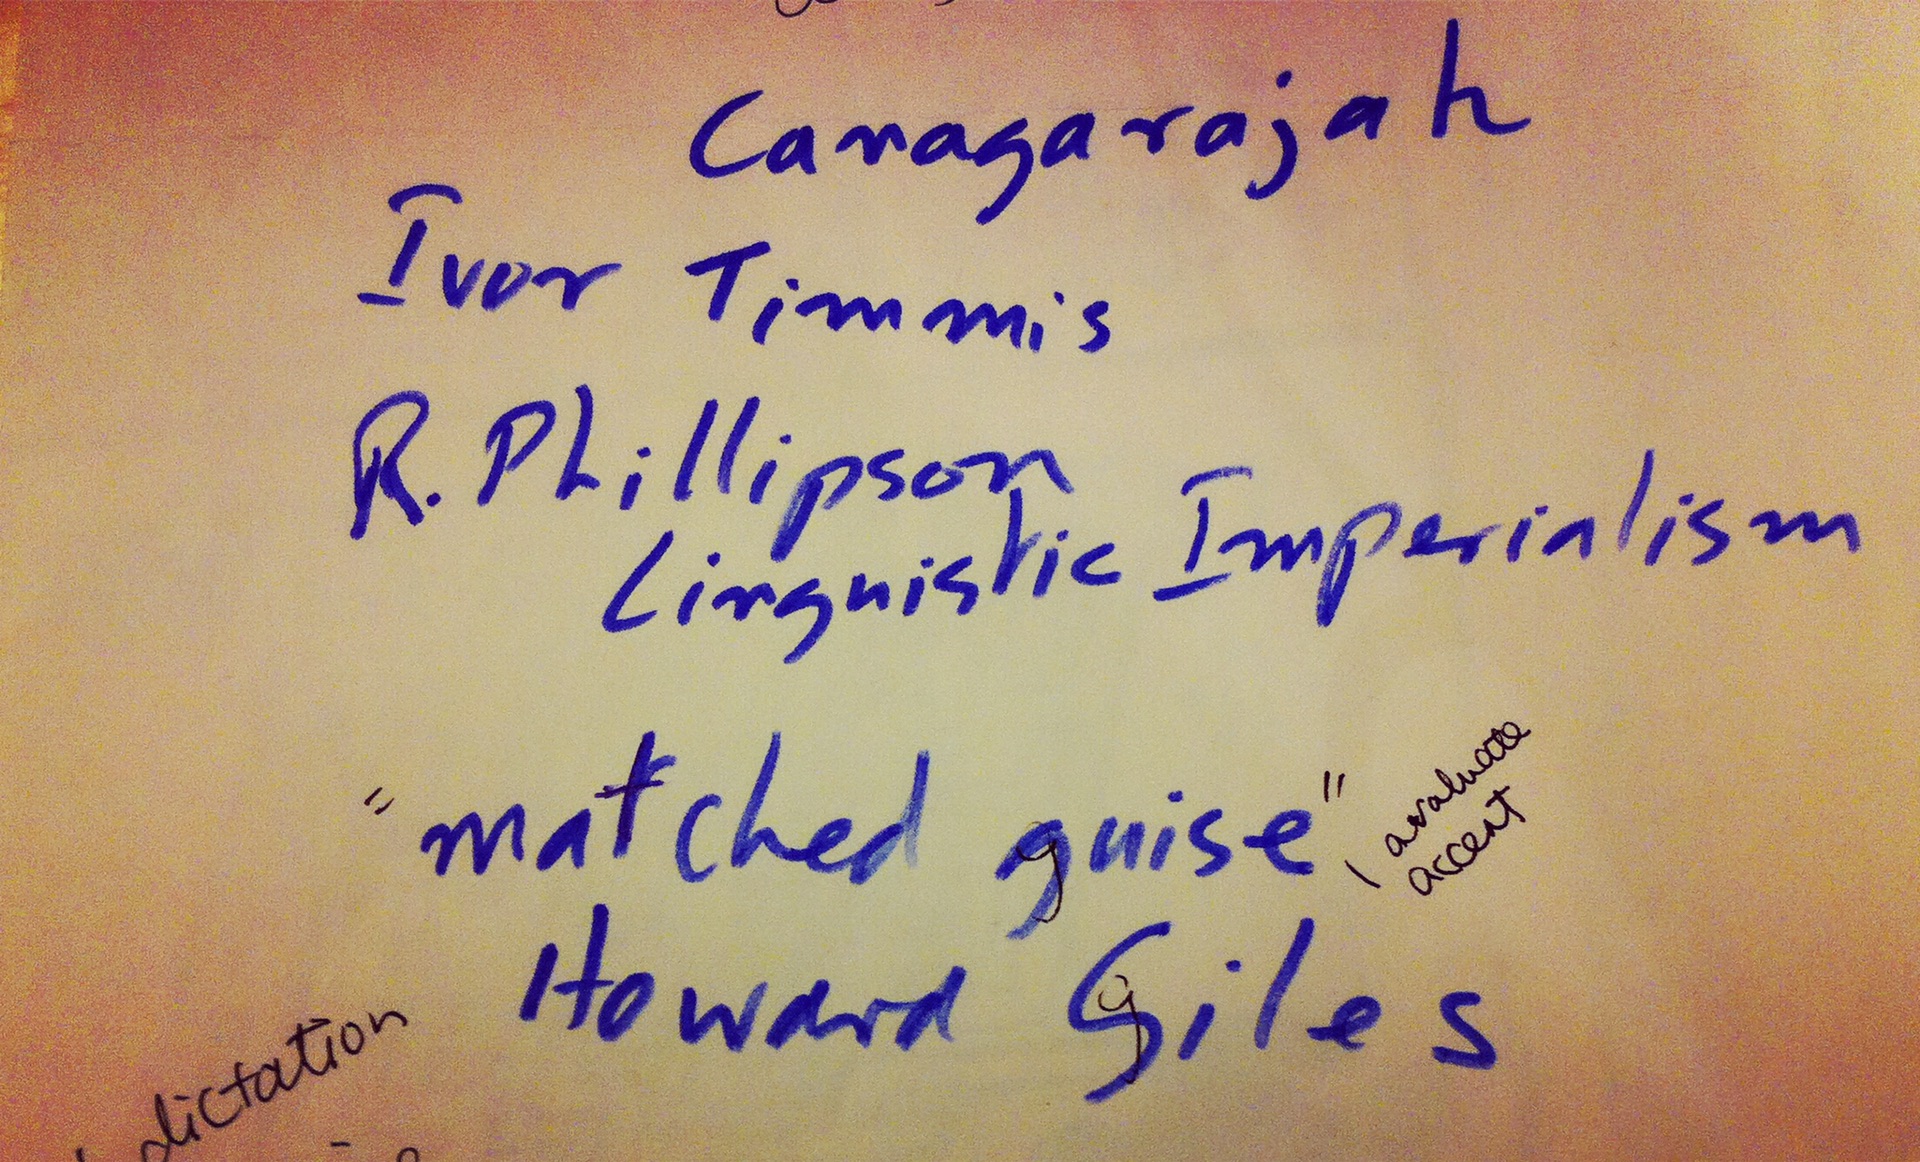 Canagarajah
Ivor Timmis
R. Phillipson
Linguistic Imperialism
"matched guise"
avaluate
accent
Howard Giles
dictation